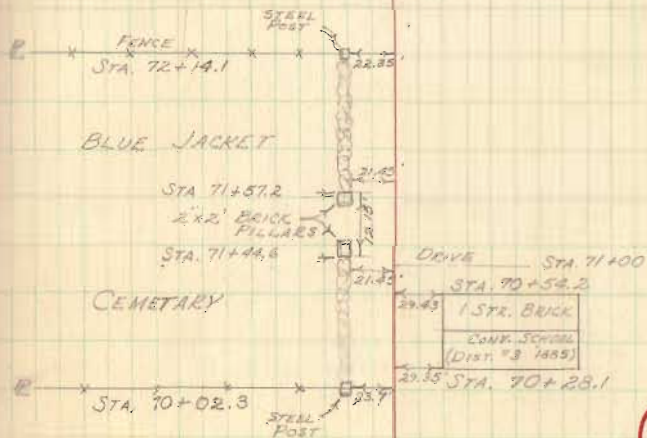 STEEL
POST
FENCE
STA. 72+14.1
22.35
BLUE JACKET
21.45
STA 71+57.2
2'x2' BRICK
PILLARS
12.15'
STA. 71+44.6
DRIVE STA. 71+00
21.45
STA. 70+54.2
CEMETARY
29.43
1 STR. BRICK
CONV. SCHOOL
(DIST. #3 1885)
29.35
STA. 70+28.1
STA. 70+02.3
23.9
STEEL
POST